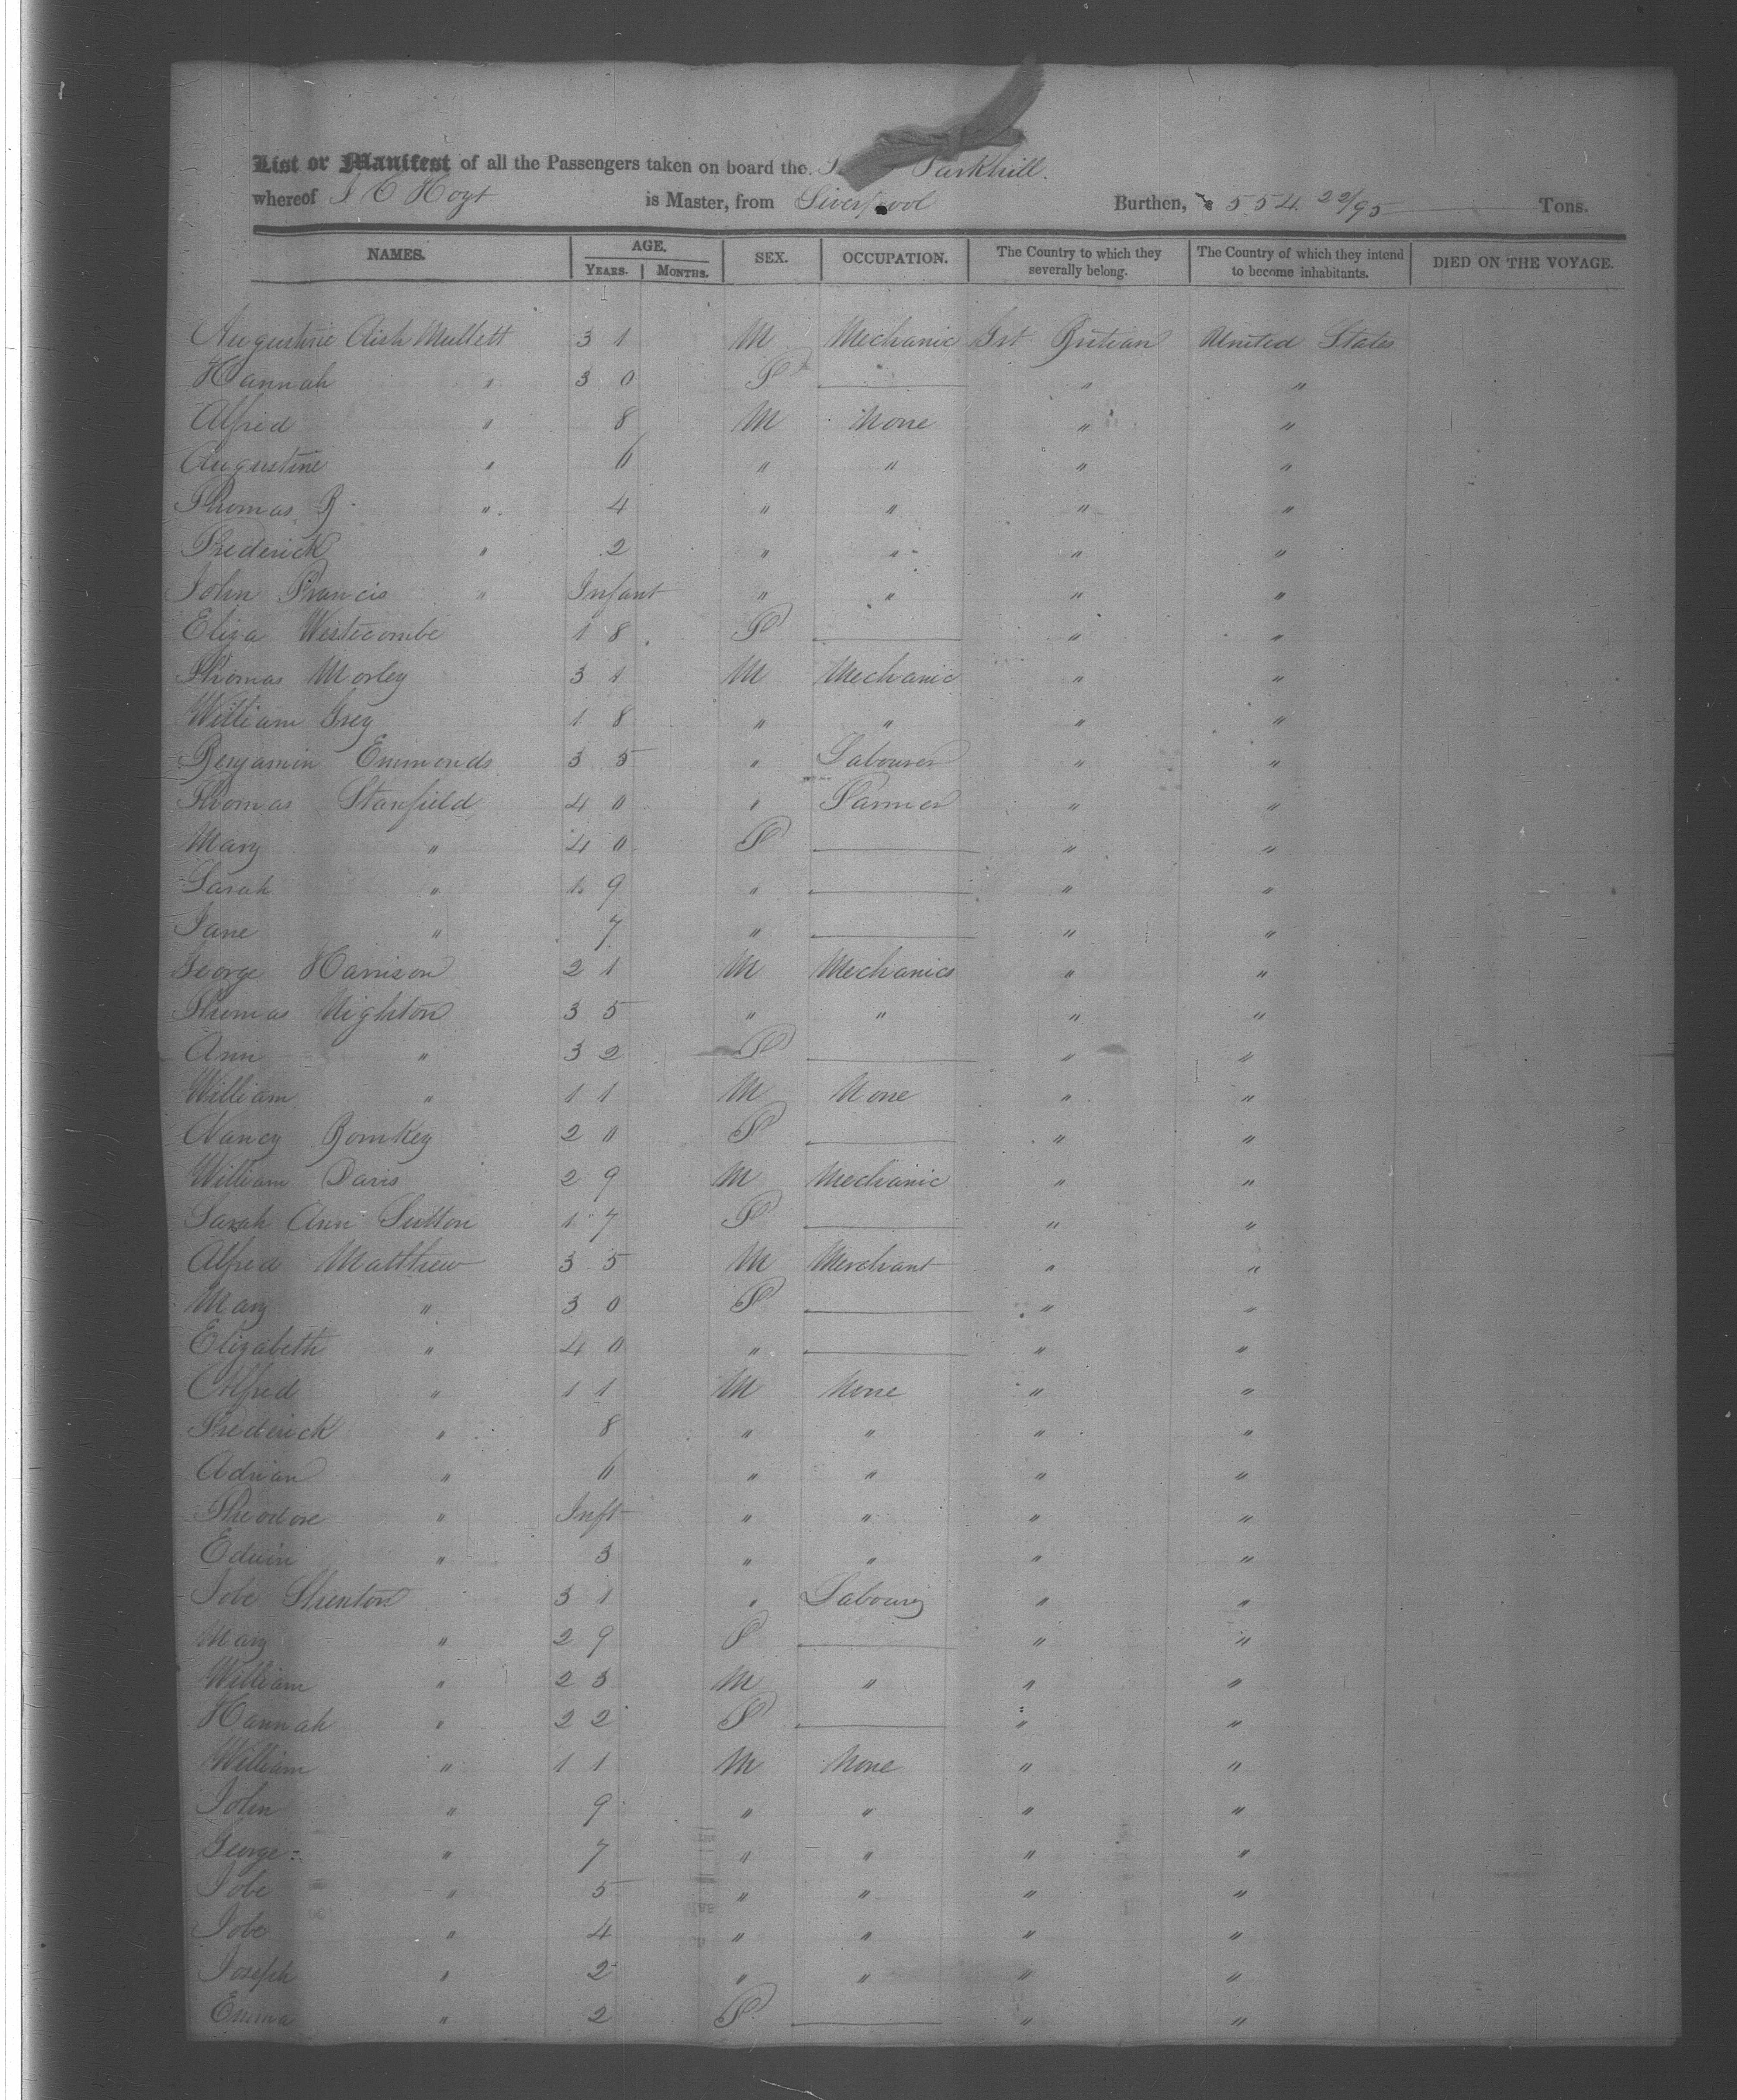 List or Manifest of all the Passengers taken on board the Parkhill.
whereof J C Hoyt is Master, from Liverpool Burthen, 554 22/95 Tons.
NAMES. AGE. YEARS. MONTHS. SEX. OCCUPATION. The Country to which they severally belong. The Country of which they intend to become inhabitants. DIED ON THE VOYAGE.
Augustine Aish Mullett 31 M Mechanic Grt Britian United States
Hannah " 30 F " "
Alfred " 8 M None " "
Augustine " 6 " " " "
Thomas B " 4 " " " "
Frederick " 2 " " " "
John Francis " Infant " " " "
Eliza Westecombe 18 F " "
Thomas Morley 31 M Mechanic " "
William Grey 18 " " " "
Benjamin Emmonds 35 " Labourer " "
Thomas Stanfield 40 " Farmer " "
Mary " 40 F " "
Sarah " 19 " " "
Jane " 7 " " "
George Harrison 21 M Mechanics " "
Thomas Nighton 35 " " " "
Ann " 32 F " "
William " 11 M None " "
Nancy Bomkey 20 F " "
William Davis 29 M Mechanic " "
Sarah Ann Sutton 17 F " "
Alfred Matthew 35 M Merchant " "
Mary " 30 F " "
Elizabeth " 40 " " "
Alfred " 11 M None " "
Frederick " 8 " " " "
Adrian " 6 " " " "
Theodore " Inft " " " "
Edwin " 3 " " " "
Jobe Shenton 31 " Labourer " "
Mary " 29 F " "
William " 23 M " " "
Hannah " 22 F " "
William " 11 M None " "
John " 9 " " " "
George " 7 " " " "
Jobe " 5 " " " "
Jobe " 4 " " " "
Joseph " 2 " " " "
Emma " 2 F " "